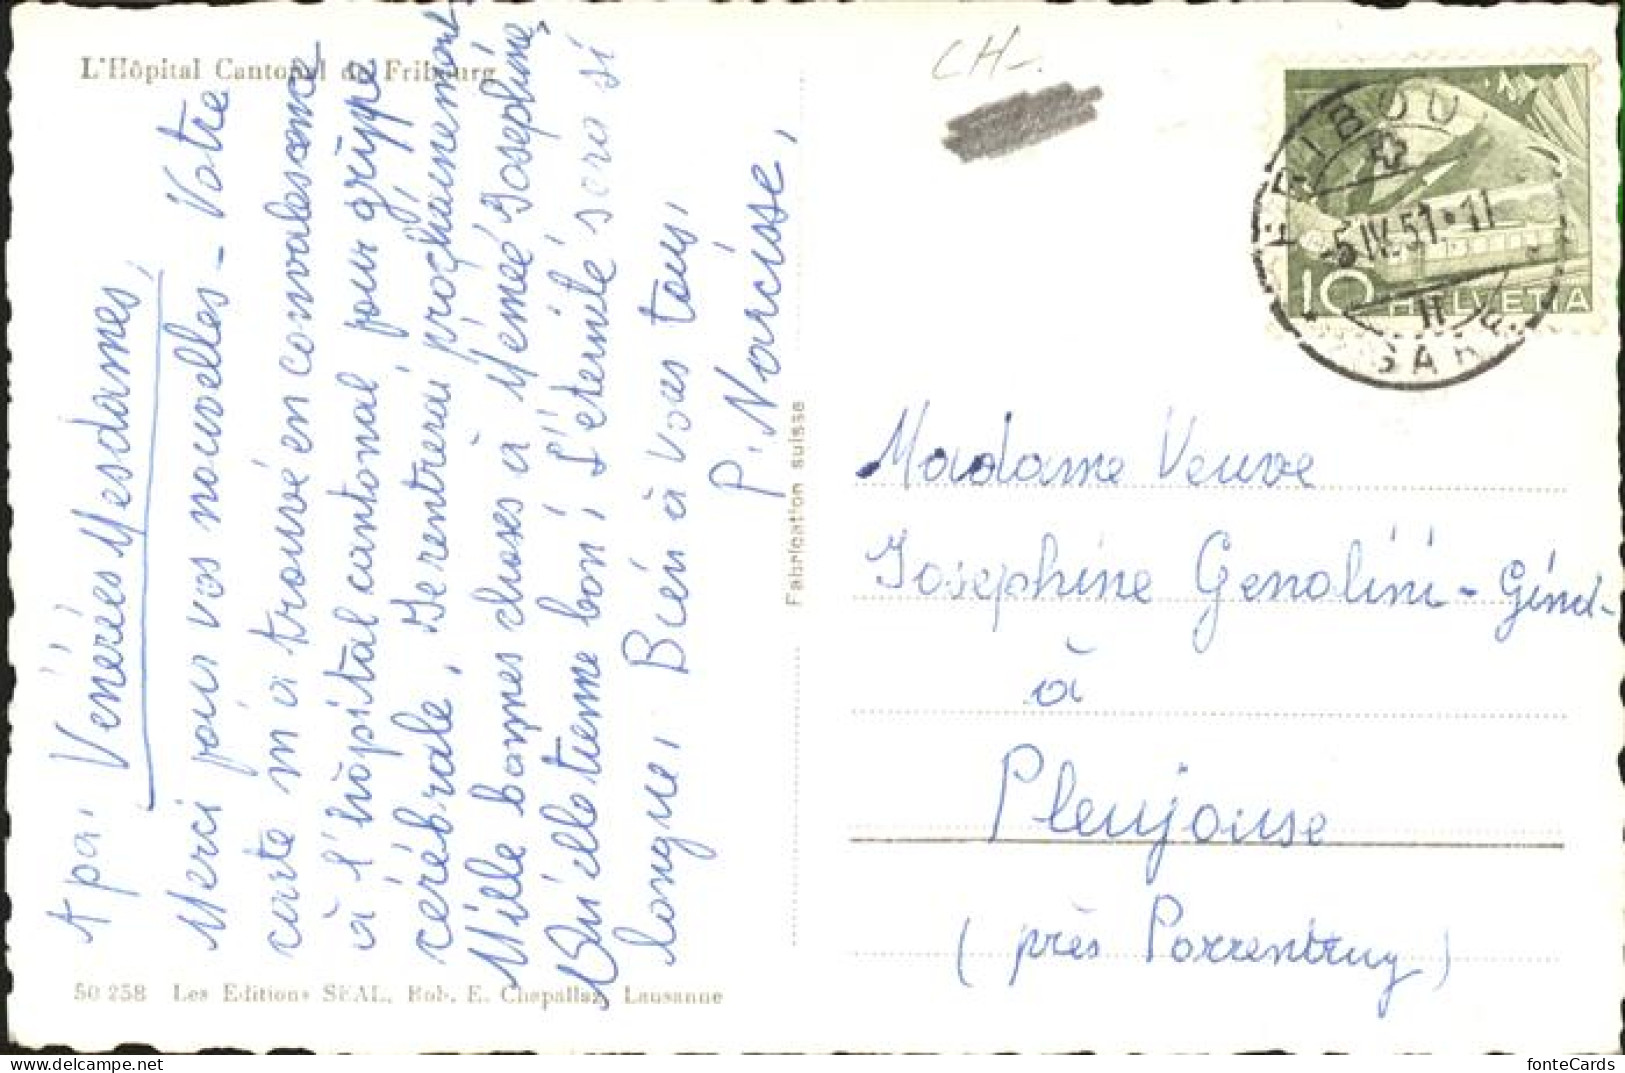 L'Hôpital Cantonal de Fribourg
Vénérées Mesdames,
Merci pour vos nouvelles - Votre
carte m'a trouvé en convalescence
à l'hôpital cantonal, pour grippe
cérébrale. Je rentrerai prochainement
Mille bonnes choses à Mémée Josephine,
Qu'elle tienne bon; l'éternité sera si
longue. Bien à vous tous,
P. Narcisse,
50 258 Les Editions SEAL, Rob. E. Chapallaz, Lausanne
Fabrication suisse
CH-.
10 HELVETIA
FRIBOU
-5.IV.51.11
II
Madame Veuve
Josephine Genolini-
à
Pleujouse
(près Porrentruy)
fonteCards